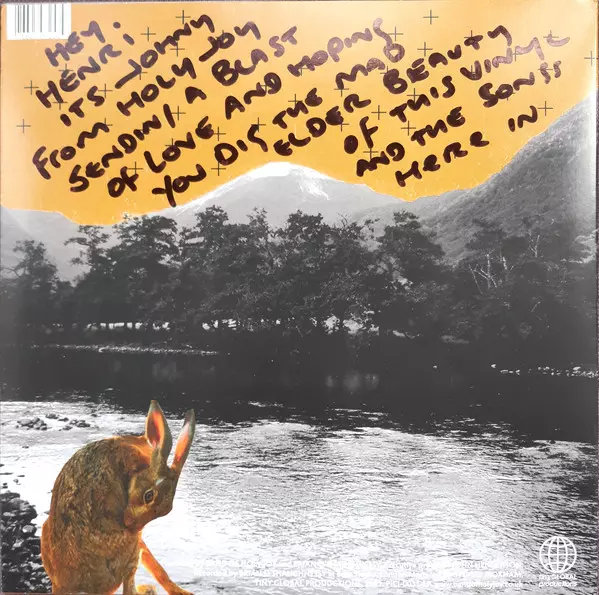 HEY.
HENRI
ITS JOHNY
FROM HOLY JOY
SENDIN' A BLAST
OF LOVE AND HOPING
YOU DIG THE MAD
ELDER BEAUTY
OF THIS VINYL
AND THE SONGS
HERE IN
TINY GLOBAL PRODUCTIONS
tinyGLOBAL
productions